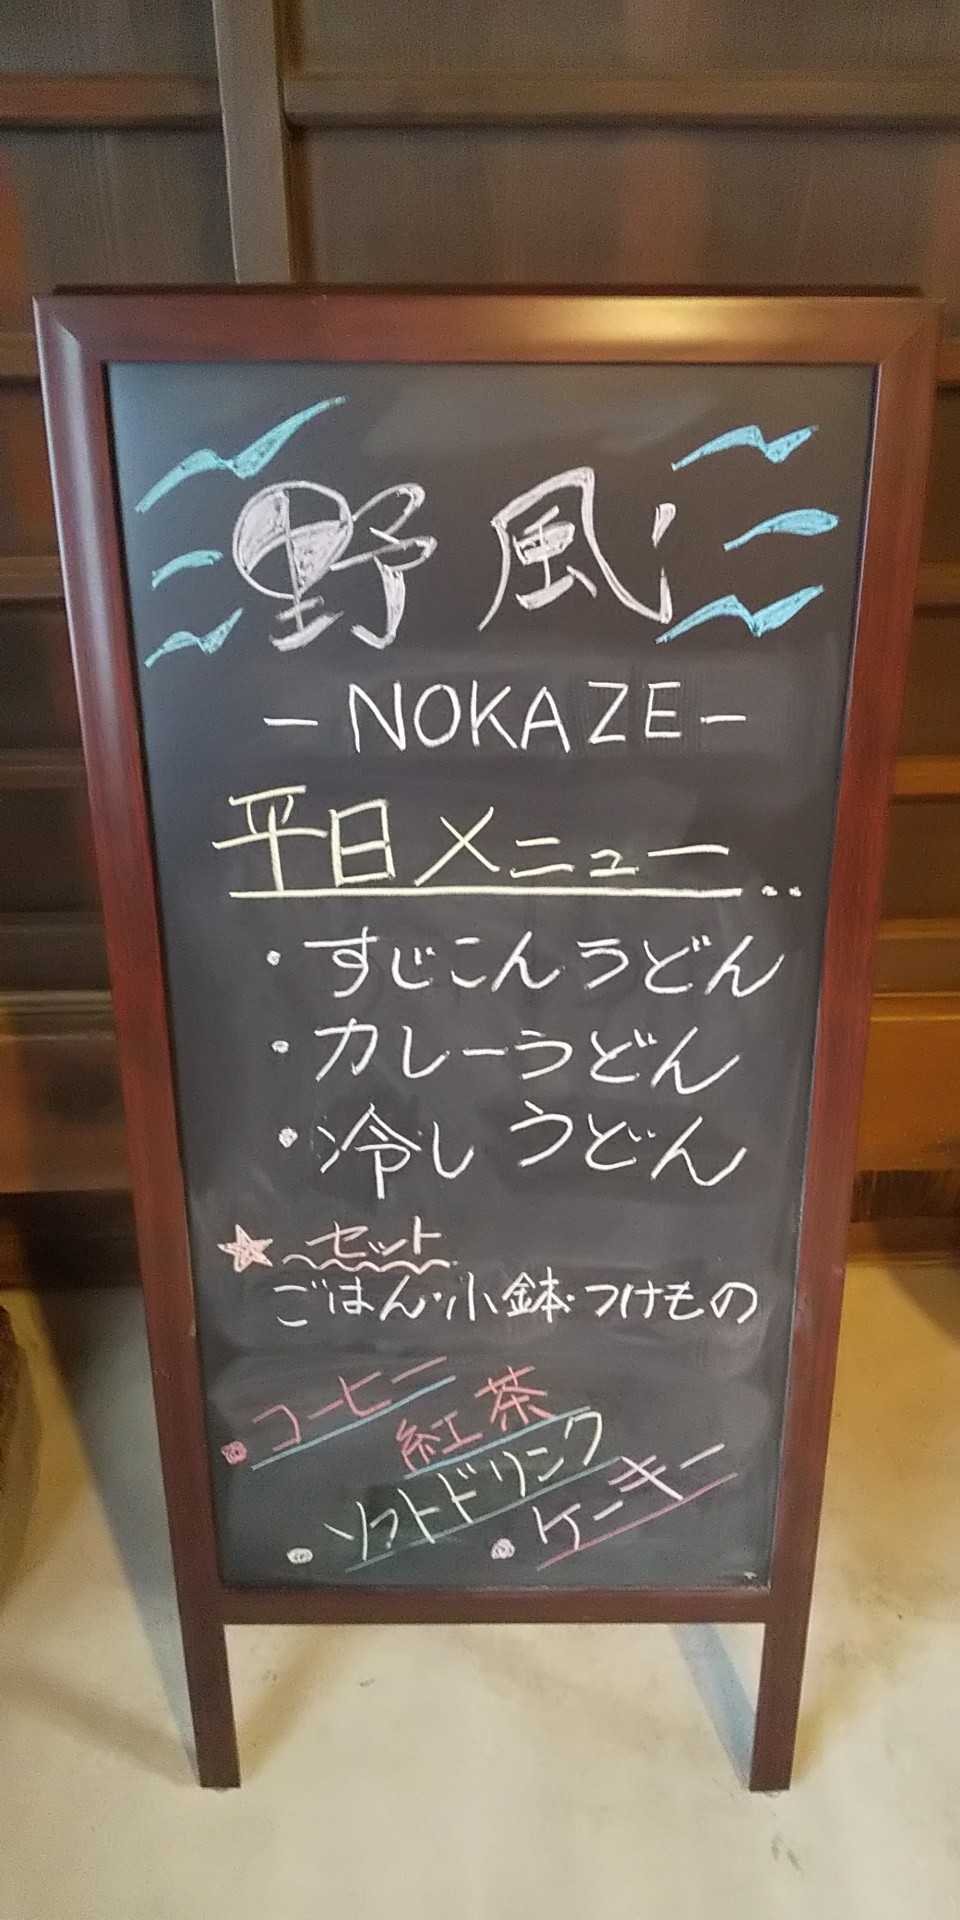 野風
-NOKAZE-
平日メニュー..
・すじこんうどん
・カレーうどん
・冷しうどん
★セット
ごはん・小鉢・つけもの
・コーヒー
紅茶
・ソフトドリンク
・ケーキ